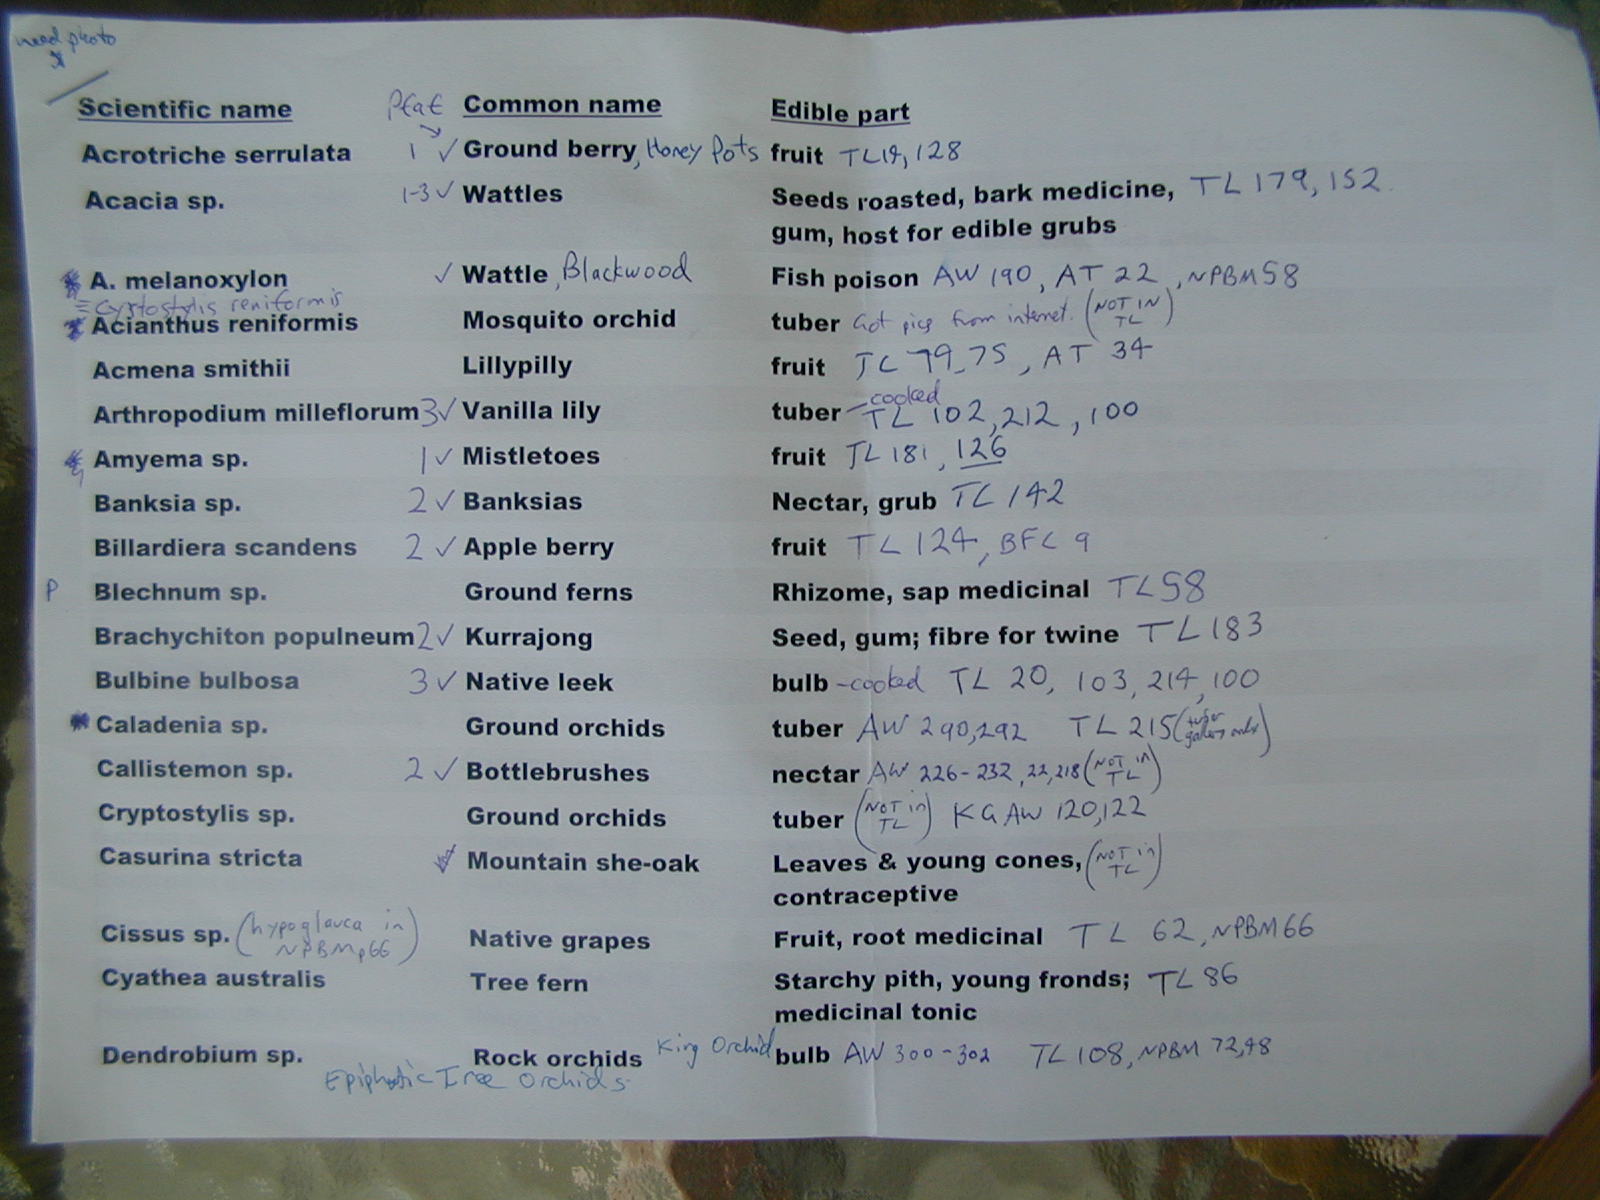 need photo
Scientific name Common name Edible part
Acrotriche serrulata 1 ✓ Ground berry, Honey Pots fruit TL19, 128
Acacia sp. 1-3 ✓ Wattles Seeds roasted, bark medicine, TL 179, 152
gum, host for edible grubs
A. melanoxylon ✓ Wattle, Blackwood Fish poison AW 190, AT 22, NPBM58
= Cyrtostylis reniformis
Acianthus reniformis Mosquito orchid tuber Got pics from internet. (NOT IN TL)
Acmena smithii Lillypilly fruit TL 79, 75, AT 34
cooked
Arthropodium milleflorum 3 ✓ Vanilla lily tuber - TL 102, 212, 100
Amyema sp. 1 ✓ Mistletoes fruit TL 181, 126
Banksia sp. 2 ✓ Banksias Nectar, grub TL 142
Billardiera scandens 2 ✓ Apple berry fruit TL 124, BFC 9
P Blechnum sp. Ground ferns Rhizome, sap medicinal TL58
Brachychiton populneum 2 ✓ Kurrajong Seed, gum; fibre for twine TL183
Bulbine bulbosa 3 ✓ Native leek bulb - cooked TL 20, 103, 214, 100
Caladenia sp. Ground orchids tuber AW 290,292 TL 215 (tuber only)
Callistemon sp. 2 ✓ Bottlebrushes nectar AW 226-232, 22, 218 (NOT in TL)
Cryptostylis sp. Ground orchids tuber (NOT in TL) KG AW 120,122
Casurina stricta ✓ Mountain she-oak Leaves & young cones, (NOT in TL)
contraceptive
Cissus sp. (hypoglauca in NPBM p66) Native grapes Fruit, root medicinal TL 62, NPBM66
Cyathea australis Tree fern Starchy pith, young fronds; TL 86
medicinal tonic
Dendrobium sp. Rock orchids King Orchid bulb AW 300-302 TL 108, NPBM 72,48
Epiphytic Tree Orchids